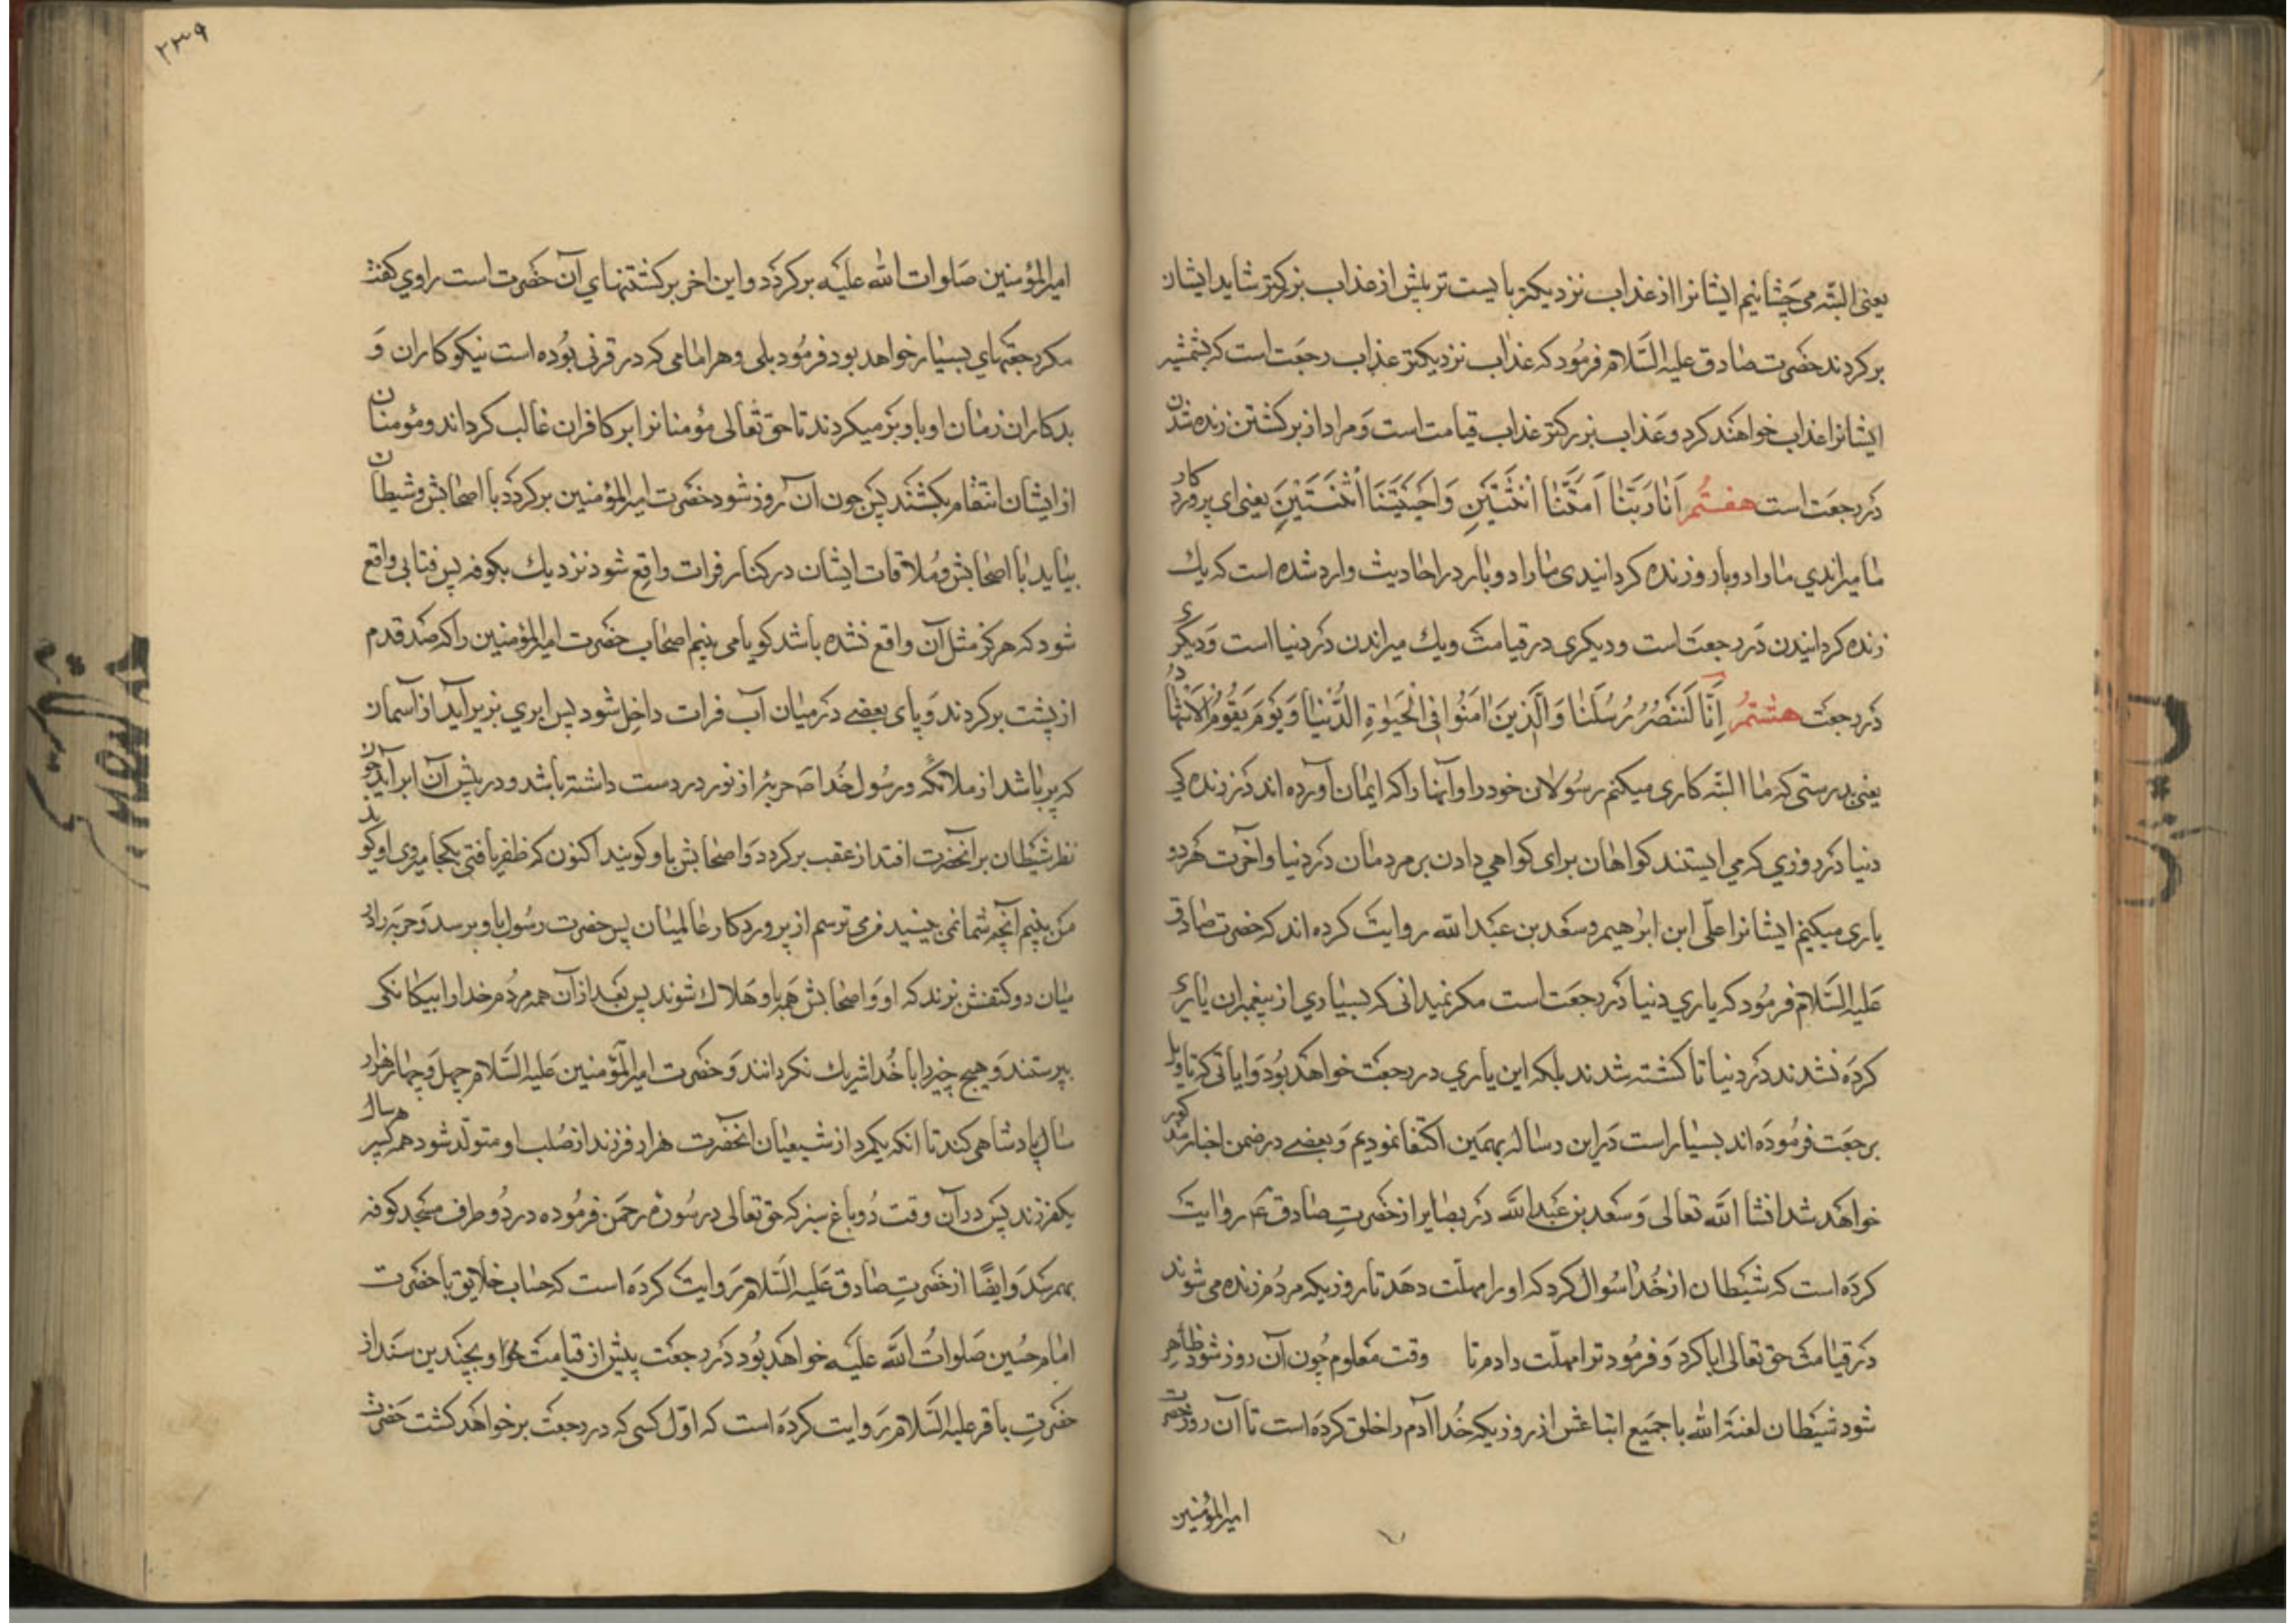 یعنی البتّه می‌چشانیم ایشانرا از عذاب نزدیکتر یا پست‌تر پیش از عذاب بزرکتر شاید ایشان
برکردند حضرت صادق علیه السّلام فرمود که عذاب نزدیکتر عذاب رجعت است که بشمشیر
ایشانرا عذاب خواهند کرد و عذاب بزرکتر عذاب قیامت است و مراد از برکشتن زنده شدن
در رجعت است هفتم اَنَا رَبَّنَا اَمَتَّنَا اثْنَتَیْنِ وَاَحْیَیْتَنَا اثْنَتَیْنِ یعنی ای پروردکار
ما میراندی ما را دو بار و زنده کردانیدی ما را دو بار در احادیث وارد شده است که یك
زنده کردانیدن در رجعت است و دیکری در قیامت و یك میراندن در دنیا است و دیکری
در رجعت هشتم اِنَّا لَنَنْصُرُ رُسُلَنَا وَالَّذِینَ امَنُوا فِی الْحَیٰوةِ الدُّنْیَا وَیَوْمَ یَقُومُ الْاَشْهَادُ
یعنی بدرستی که ما البتّه کاری میکنم رسولان خود را و آنها را که ایمان آورده اند در زنده کی
دنیا در روزی که می ایستند کواهان برای کواهی دادن بر مردمان در دنیا و آخرت هر دو
یاری میکنیم ایشانرا علّی ابن ابرٰهیم و سعد بن عبد الله روایت کرده اند که حضرت صادق
علیه السّلام فرمود که یاری دنیا در رجعت است مکر نمیدانی که بسیاری از پیغمبران یاری
کرده نشدند در دنیا تا کشته شدند بلکه این یاری در رجعت خواهد بود و ایاتی که تاویل
برجعت فرموده اند بسیار است در این رساله بهمین اکتفا نمودیم و بعضے در ضمن اخبار مذکور
خواهد شد انشا اللّه تعالی و سعد بن عبد اللّه در بصایر از حضرتِ صادق ع روایت
کرده است که شیطان از خدا سوال کرد که او را مهلت دهد تا روزیکه مردم زنده می شوند
در قیامت حق تعالی ابا کرد و فرمود ترا مهلت دادم تا وقت معلوم چون آن روز شود ظاهر
شود شیطان لعنة الله با جمیع اتباعش از روزیکه خدا آدم را خلق کرده است تا آن روز حضرت
امیرالمؤمنین
۲۳۹
امیرالمؤمنین صلوات الله علیه برکردد و این اخر برکشتنهای آن حضرت است راوی کفت
مکر رجعتهای بسیار خواهد بود فرمود بلی و هر امامی که در قرنی بوده است نیکوکاران و
بدکاران زمان او با او بر میکردند تا حق تعالی مؤمنانرا بر کافران غالب کرداند و مؤمنان
از ایشان انتقام بکشند پس چون آن روز شود حضرت امیرالمؤمنین برکردد با اصحابش و شیطان
بیاید با اصحابش و ملاقات ایشان در کنار فرات واقع شود نزدیك بکوفه پس قتالی واقع
شود که هرکز مثل آن واقع نشده باشد کویا می بینم اصحاب حضرت امیرالمؤمنین را که صد قدم
از پشت برکردند و پای بعضے در میان آب فرات داخل شود پس ابری بزیر آید از آسمان
که پر باشد از ملائکه و رسول خدا ص حربۀ از نور در دست داشته باشد و در پیش آن ابر آید چون
نظر شیطان بر آنحضرت افتد از عقب برکردد و اصحابش باو کویند اکنون که ظفر یافتی بکجا میروی او کوید
من بینم آنچه شما نمی بینید من می ترسم از پروردکار عالمیان پس حضرت رسول باو برسد و حربه را در
میان دو کتفش بزند که او و اصحابش همه باو هلاك شوند پس بعد از آن همه مردم خدا را بیکانکی
بپرستند و هیچ چیز را با خدا شریك نکردانند و حضرت امیرالمؤمنین علیه السّلام چهل و چهار هزار
سال پادشاهی کند تا آنکه یکمرد از شیعیان آنحضرت هزار فرزند از صلب او متولّد شود همه پسر هر سال
یکفرزند پس در آن وقت دو باغ سبز که حق تعالی در سوره رحمن فرموده در دو طرف مسجد کوفه
بهمرسد و ایضًا از حضرتِ صادق علیه السّلام روایت کرده است که حساب خلایق با حضرت
امام حسین صلواتُ اللّه علیه خواهد بود در رجعت پیش از قیامت و بچندین سند از
حضرتِ باقر علیه السّلام روایت کرده است که اوّل کسی که در رجعت بر خواهد کشت حضرت